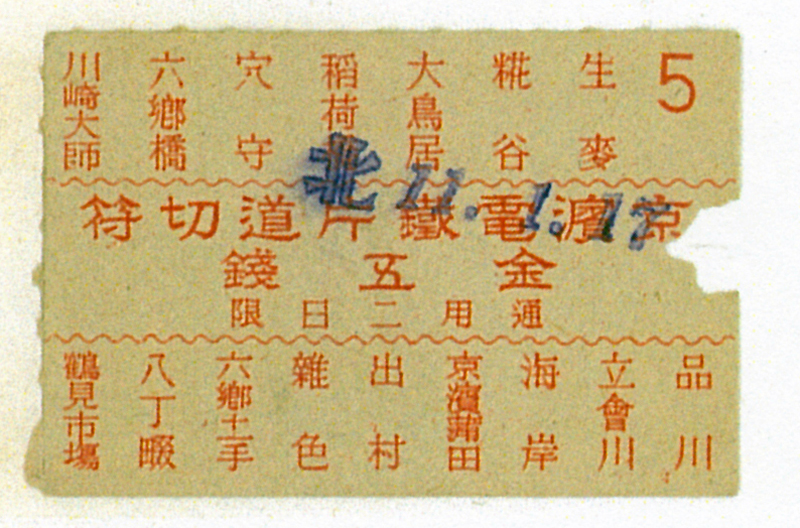 5
生麥
糀谷
大鳥居
稲荷
穴守
六鄕橋
川崎大師
北 11.1.17
京濱電鐵片道切符
金五錢
通用二日限
品川
立會川
海岸
京濱蒲田
出村
雜色
六鄕土手
八丁畷
鶴見市場